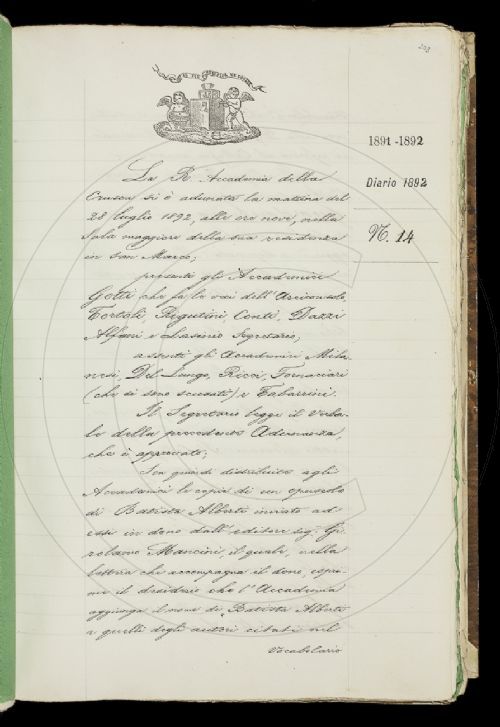 203
1891-1892
Diario 1892
N. 14
La R. Accademia della
Crusca si è adunata la mattina del
28 luglio 1892, alle ore nove, nella
Sala maggiore della sua residenza
in San Marco;
presenti gli Accademici
Gotti che fa le veci dell'Arciconsolo,
Tortoli, Rigutini, Conti, Dazzi
Alfani e Lasinio Segretario,
assenti gli Accademici Mila-
nesi, Del Lungo, Ricci, Fornaciari
(che si sono scusati) e Tabarrini.
Il Segretario legge il Verba-
le della precedente Adunanza,
che è approvato;
Son quindi distribuite agli
Accademici le copie di un opuscolo
di Batista Alberti inviato ad
essi in dono dall'editore sig. Gi-
rolamo Mancini, il quale, nella
lettera che accompagna il dono, espri-
me il desiderio che l'Accademia
aggiunga il nome di Batista Alberti
a quelli degli autori citati nel
Vocabolario